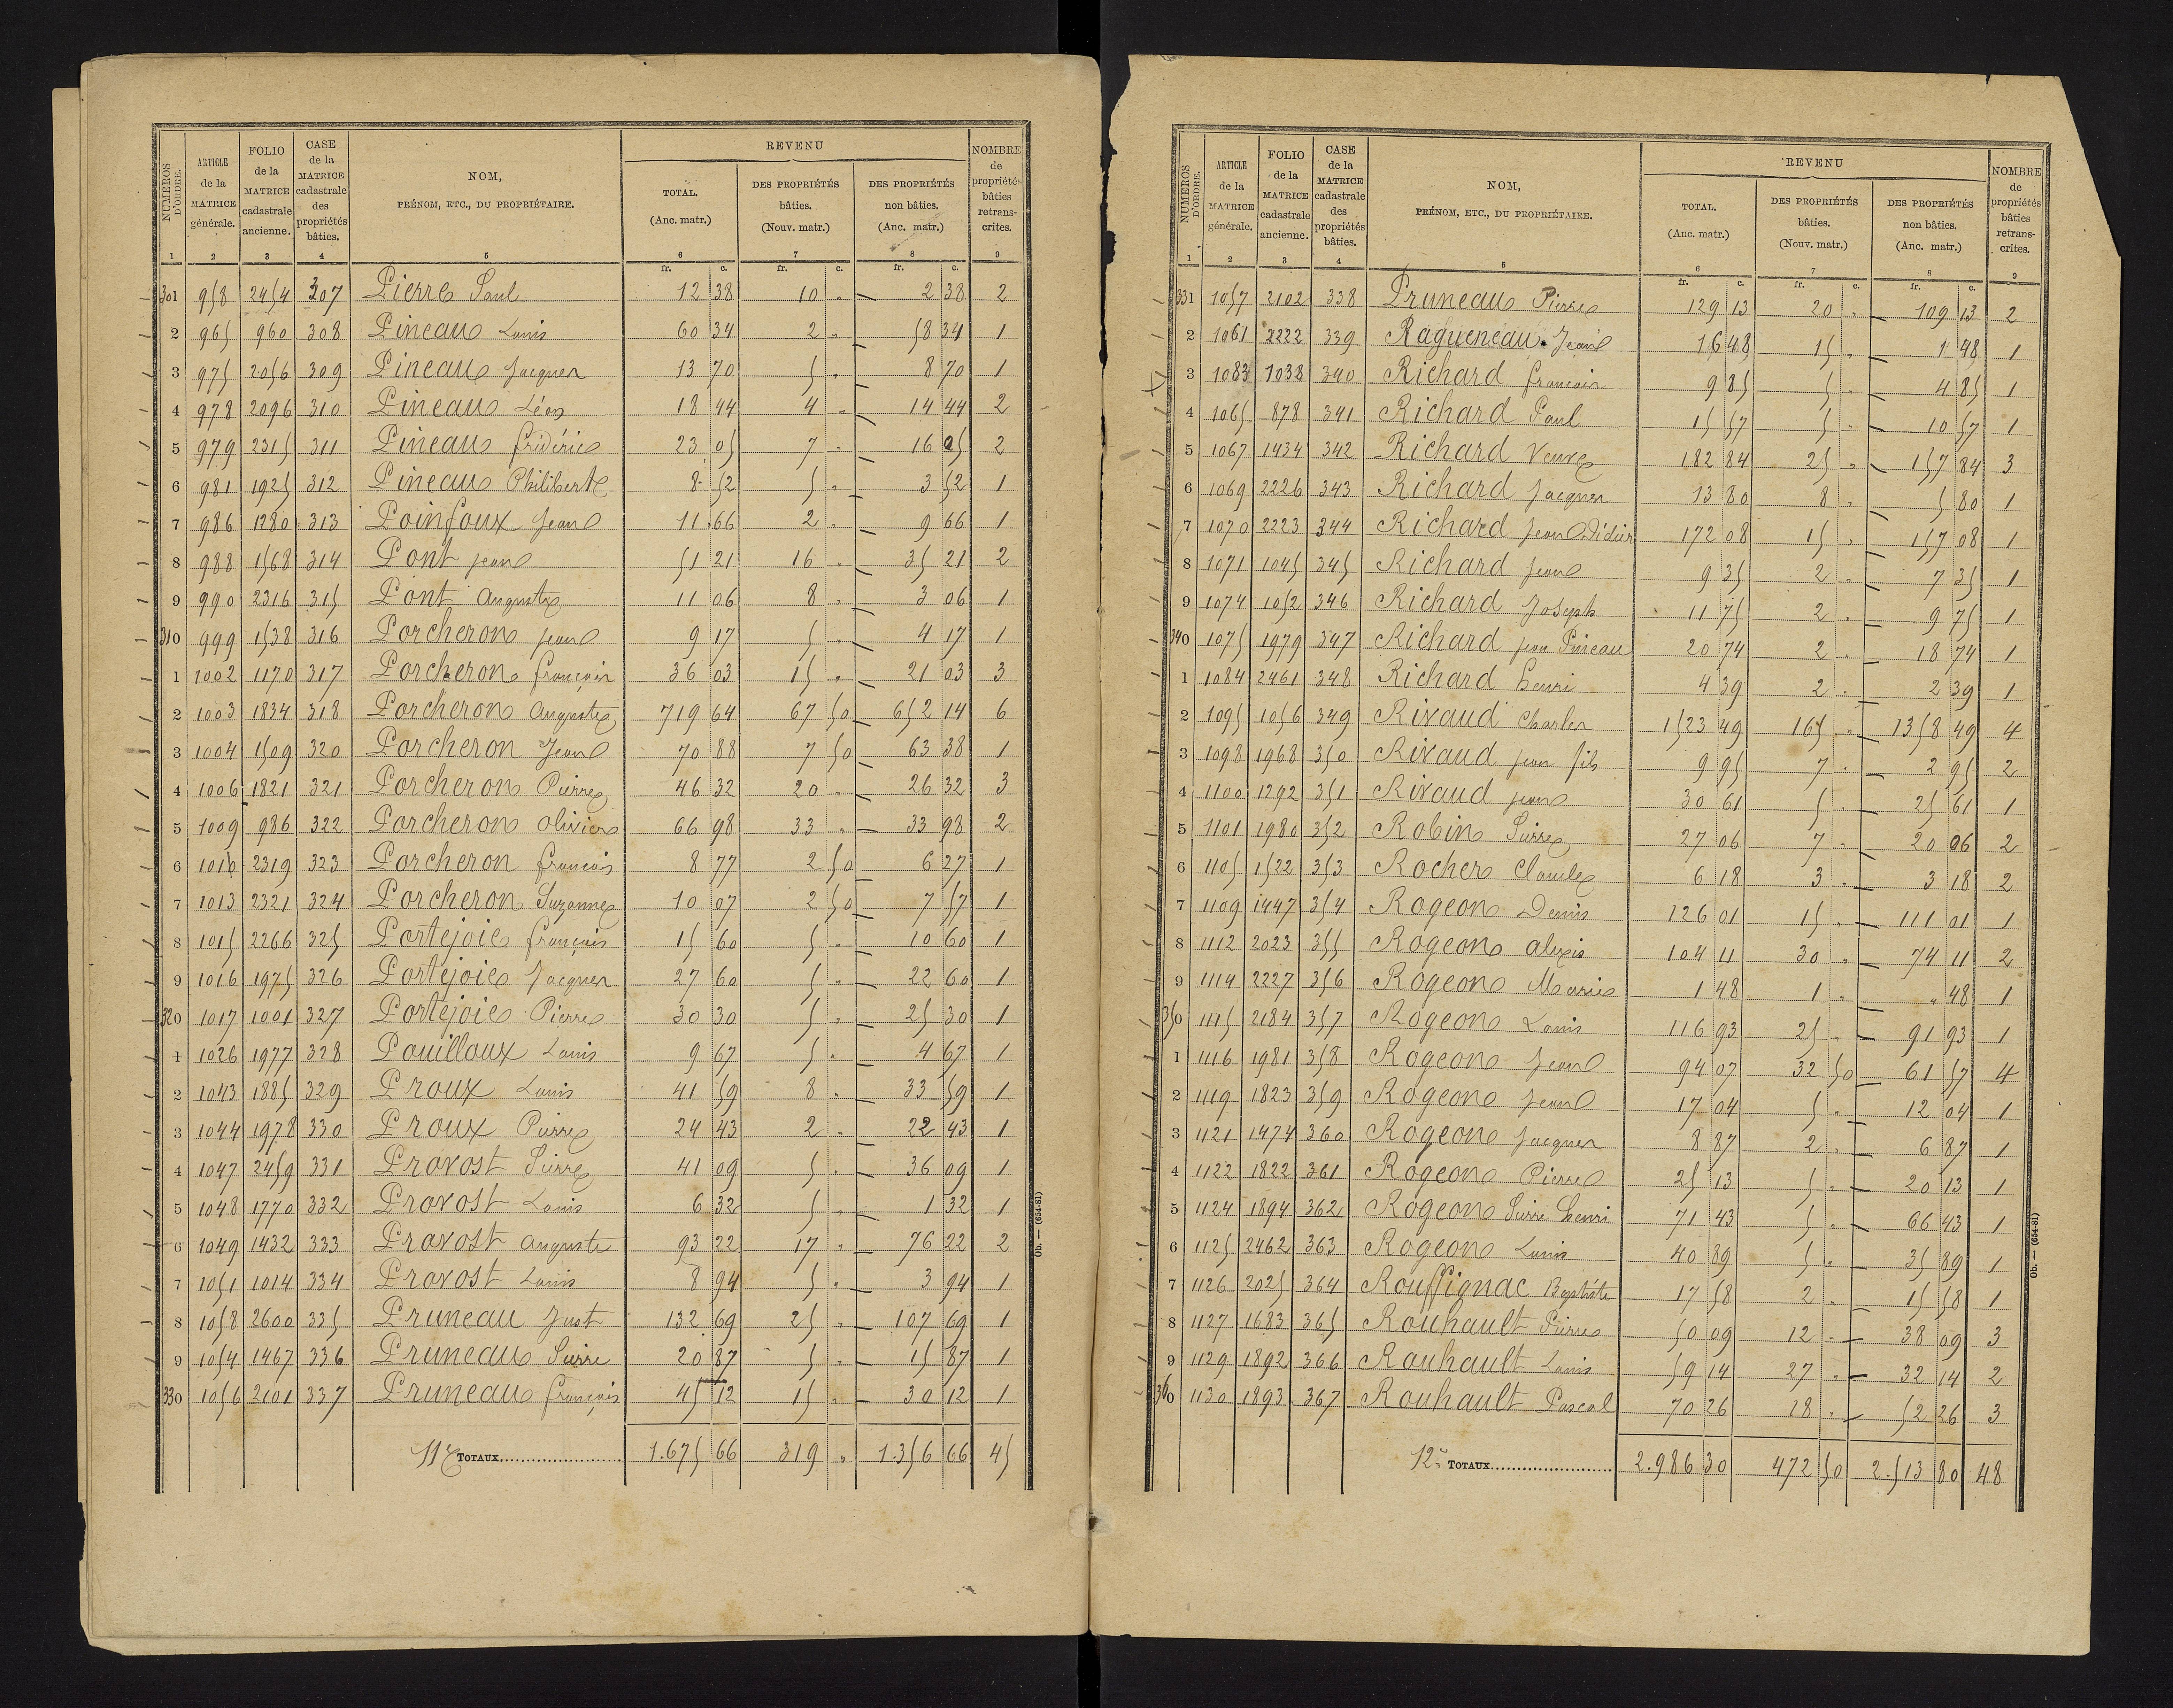 NUMÉROS D'ORDRE. ARTICLE de la MATRICE générale. FOLIO de la MATRICE cadastrale ancienne. CASE de la MATRICE cadastrale des propriétés bâties. NOM, PRÉNOM, ETC., DU PROPRIÉTAIRE. REVENU TOTAL. (Anc. matr.) DES PROPRIÉTÉS bâties. (Nouv. matr.) DES PROPRIÉTÉS non bâties. (Anc. matr.) NOMBRE de propriétés bâties retranscrites.
1 2 3 4 5 6 7 8 9
fr. c. fr. c. fr. c.
301 958 2454 307 Pierre Paul 12 38 10 " 2 38 2
2 965 960 308 Pineau Louis 60 34 2 " 58 34 1
3 975 2056 309 Pineau Jacques 13 70 5 " 8 70 1
4 978 2096 310 Pineau Léon 18 44 4 " 14 44 2
5 979 2315 311 Pineau frédéric 23 05 7 " 16 05 2
6 981 1925 312 Pineau Philiberte 8 52 5 " 3 52 1
7 986 1280 313 Poinfoux Jean 11 66 2 " 9 66 1
8 988 1568 314 Pont Jean 51 21 16 " 35 21 2
9 990 2316 315 Pont Auguste 11 06 8 " 3 06 1
310 999 1538 316 Porcheron Jean 9 17 5 " 4 17 1
1 1002 1170 317 Porcheron françois 36 03 15 " 21 03 3
2 1003 1834 318 Porcheron Auguste 719 64 67 50 652 14 6
3 1004 1509 320 Porcheron Jean 70 88 7 50 63 38 1
4 1006 1821 321 Porcheron Pierre 46 32 20 " 26 32 3
5 1009 986 322 Porcheron Olivier 66 98 33 " 33 98 2
6 1010 2319 323 Porcheron françois 8 77 2 50 6 27 1
7 1013 2321 324 Porcheron Suzanne 10 07 2 50 7 57 1
8 1015 2266 325 Portejoie françois 15 60 5 " 10 60 1
9 1016 1975 326 Portejoie Jacques 27 60 5 " 22 60 1
320 1017 1001 327 Portejoie Pierre 30 30 5 " 25 30 1
1 1026 1977 328 Pouilloux Louis 9 67 5 " 4 67 1
2 1043 1885 329 Proux Louis 41 59 8 " 33 59 1
3 1044 1978 330 Proux Pierre 24 43 2 " 22 43 1
4 1047 2459 331 Provost Pierre 41 09 5 " 36 09 1
5 1048 1770 332 Provost Louis 6 32 5 " 1 32 1
6 1049 1432 333 Provost Auguste 93 22 17 " 76 22 2
7 1051 1014 334 Provost Louis 8 94 5 " 3 94 1
8 1058 2600 335 Pruneau Just 132 69 25 " 107 69 1
9 1054 1467 336 Pruneau Pierre 20 87 5 " 15 87 1
330 1056 2101 337 Pruneau françois 45 12 15 " 30 12 1
11e TOTAUX 1.675 66 319 " 1.356 66 45
Ob. — (654-81)
NUMÉROS D'ORDRE. ARTICLE de la MATRICE générale. FOLIO de la MATRICE cadastrale ancienne. CASE de la MATRICE cadastrale des propriétés bâties. NOM, PRÉNOM, ETC., DU PROPRIÉTAIRE. REVENU TOTAL. (Anc. matr.) DES PROPRIÉTÉS bâties. (Nouv. matr.) DES PROPRIÉTÉS non bâties. (Anc. matr.) NOMBRE de propriétés bâties retranscrites.
1 2 3 4 5 6 7 8 9
fr. c. fr. c. fr. c.
331 1057 2102 338 Pruneau Pierre 129 13 20 " 109 13 2
2 1061 2222 339 Ragueneau Jean 16 48 15 " 1 48 1
3 1083 1038 340 Richard françois 9 85 5 " 4 85 1
4 1065 878 341 Richard Paul 15 57 5 " 10 57 1
5 1067 1434 342 Richard Veuve 182 84 25 " 157 84 3
6 1069 2226 343 Richard Jacques 13 80 8 " 5 80 1
7 1070 2223 344 Richard Jean Didier 172 08 15 " 157 08 1
8 1071 1045 345 Richard Jean 9 35 2 " 7 35 1
9 1074 1052 346 Richard Joseph 11 75 2 " 9 75 1
340 1075 1979 347 Richard Jean Pineau 20 74 2 " 18 74 1
1 1084 2461 348 Richard henri 4 39 2 " 2 39 1
2 1095 1056 349 Rivaud Charles 1523 49 165 " 1358 49 4
3 1098 1968 350 Rivaud Jean fils 9 95 7 " 2 95 2
4 1100 1292 351 Rivaud Jean 30 61 5 " 25 61 1
5 1101 1980 352 Robin Pierre 27 06 7 " 20 06 2
6 1105 1522 353 Rocher Claude 6 18 3 " 3 18 2
7 1109 1447 354 Rogeon Denis 126 01 15 " 111 01 1
8 1112 2023 355 Rogeon Alexis 104 11 30 " 74 11 2
9 1114 2227 356 Rogeon Marie 1 48 1 " " 48 1
350 1115 2184 357 Rogeon Louis 116 93 25 " 91 93 1
1 1116 1981 358 Rogeon Jean 94 07 32 50 61 57 4
2 1119 1823 359 Rogeon Jean 17 04 5 " 12 04 1
3 1121 1474 360 Rogeon Jacques 8 87 2 " 6 87 1
4 1122 1822 361 Rogeon Pierre 25 13 5 " 20 13 1
5 1124 1894 362 Rogeon Pierre henri 71 43 5 " 66 43 1
6 1125 2462 363 Rogeon Louis 40 89 5 " 35 89 1
7 1126 2025 364 Rouffignac Baptiste 17 58 2 " 15 58 1
8 1127 1683 365 Rouhault Pierre 50 09 12 " 38 09 3
9 1129 1892 366 Rouhault Louis 59 14 27 " 32 14 2
360 1130 1893 367 Rouhault Pascal 70 26 18 " 52 26 3
12e TOTAUX 2.986 30 472 50 2.513 80 48
Ob. — (654-81)